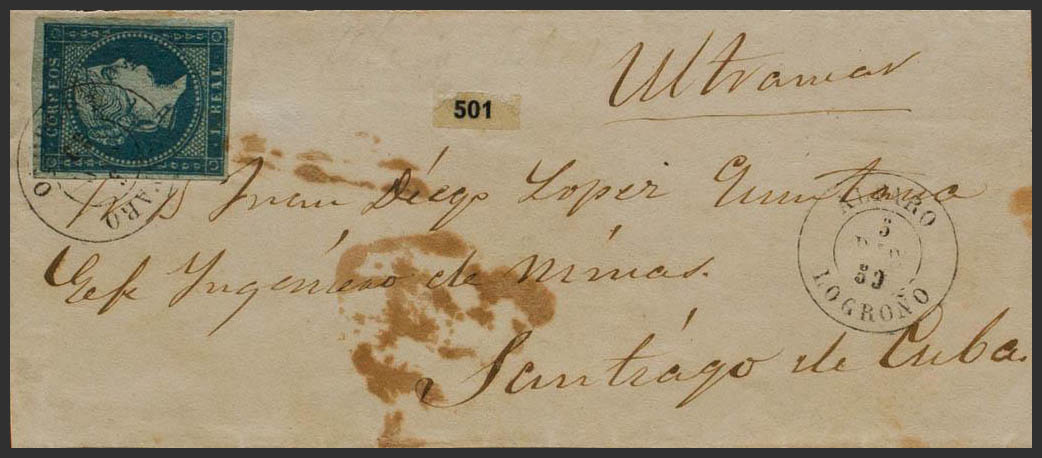 CORREOS
1 REAL
501
Ultramar
Juan Diego Lopez Quintana
Gefe Ingeniero de Minas.
Santiago de Cuba.
ALFARO
5
DIC
59
LOGROÑO